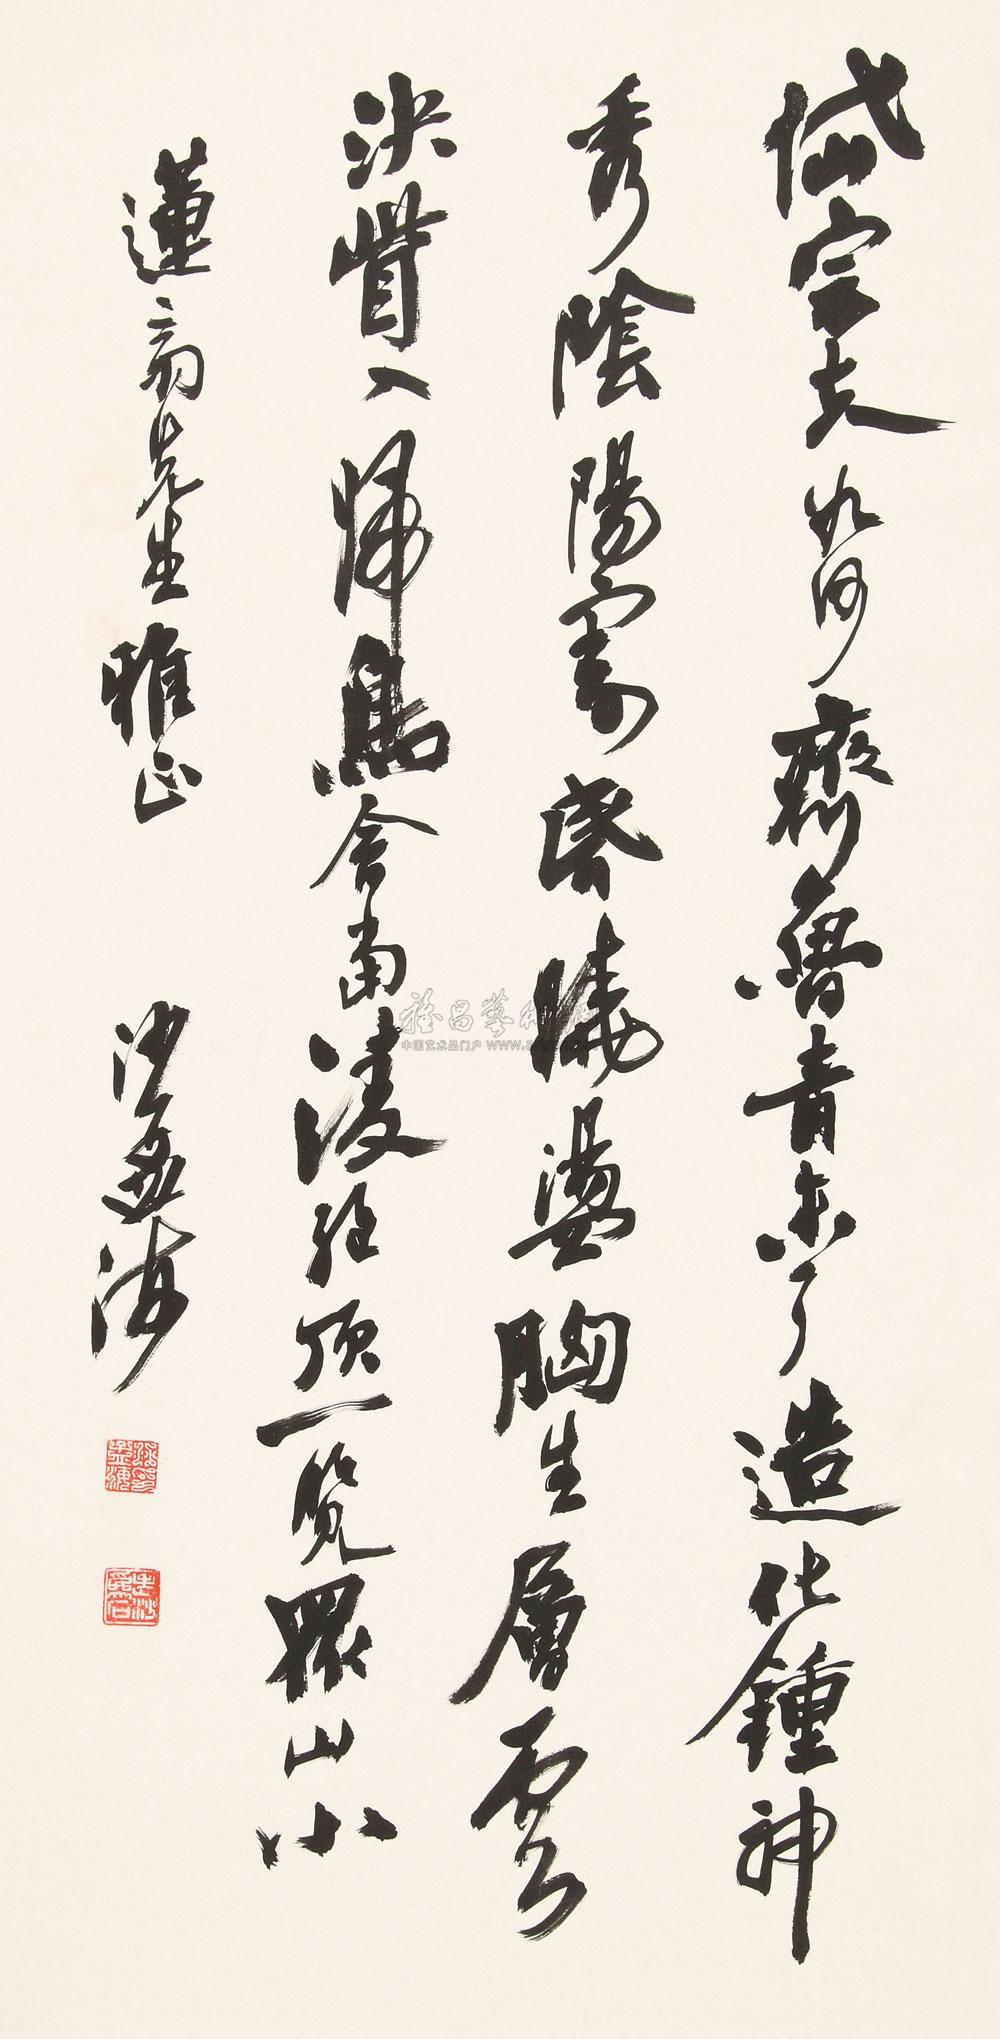 岱宗夫如何齊魯青未了造化鍾神
秀陰陽割昏曉盪胸生層雲
決眥入歸鳥會當淩絕頂一覽眾山小
蓮先生雅正 沙孟海
雅昌藝術
中国艺术品门户